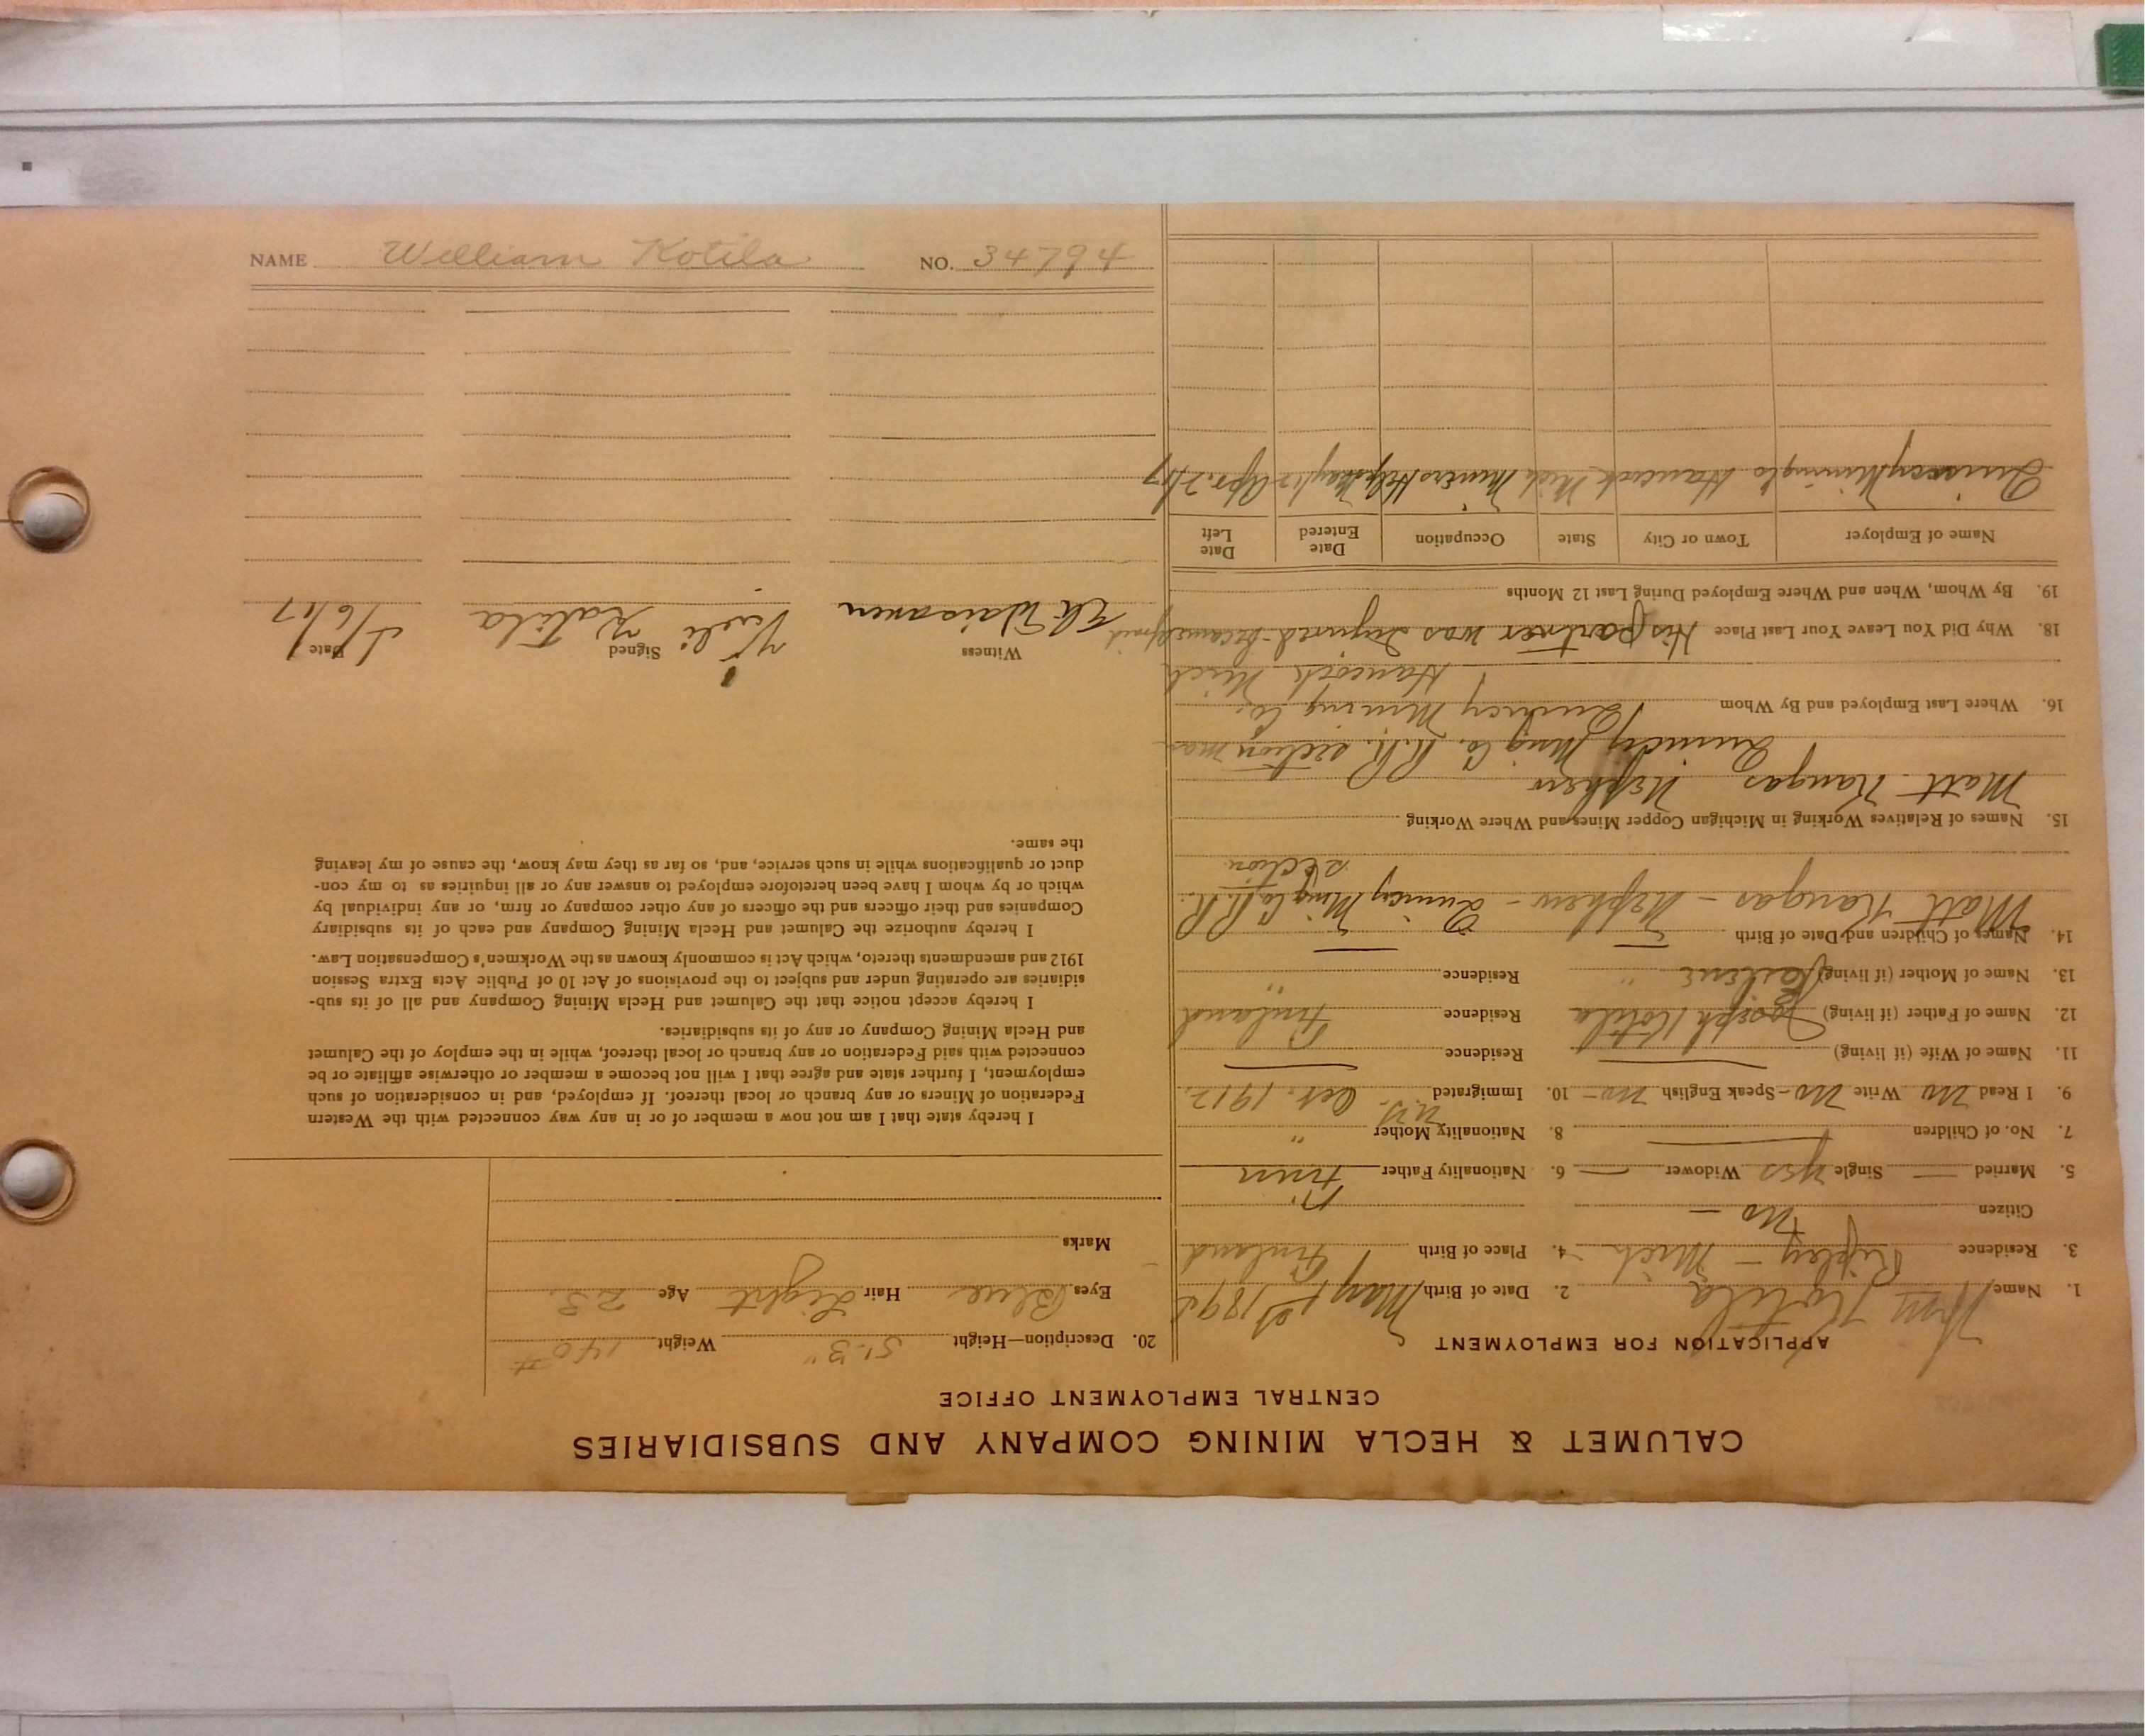 CALUMET & HECLA MINING COMPANY AND SUBSIDIARIES
CENTRAL EMPLOYMENT OFFICE
APPLICATION FOR EMPLOYMENT
1. Name Wm Kotila 2. Date of Birth May 1st 1895
3. Residence Ripley - Mich. 4. Place of Birth Finland
Citizen No -
5. Married — Single Yes Widower — 6. Nationality Father Finn
7. No. of Children — 8. Nationality Mother "
9. I Read No Write No - Speak English No - 10. Immigrated Oct. 1912.
11. Name of Wife (if living) — Residence —
12. Name of Father (if living) Joseph Kotila Residence Finland
13. Name of Mother (if living) " Residence "
14. Names of Children and Date of Birth —
Matt Kangas - Nephew - Quincy Mng Co R.R.
section
15. Names of Relatives Working in Michigan Copper Mines and Where Working
Matt Kangas Nephew
Quincy Mng Co. R.R. section man
16. Where Last Employed and By Whom Quincy Mining Co.
Hancock Mich
18. Why Did You Leave Your Last Place His partner was injured - became afraid
19. By Whom, When and Where Employed During Last 12 Months
Name of Employer Town or City State Occupation Date Entered Date Left
Quincy Mining Co Hancock Mich Miners Help May/12 Apr. 2/17
20. Description—Height 5'-3" Weight 140#
Eyes Blue Hair Light Age 23.
Marks
I hereby state that I am not now a member of or in any way connected with the Western
Federation of Miners or any branch or local thereof. If employed, and in consideration of such
employment, I further state and agree that I will not become a member or otherwise affiliate or be
connected with said Federation or any branch or local thereof, while in the employ of the Calumet
and Hecla Mining Company or any of its subsidiaries.
I hereby accept notice that the Calumet and Hecla Mining Company and all of its sub-
sidiaries are operating under and subject to the provisions of Act 10 of Public Acts Extra Session
1912 and amendments thereto, which Act is commonly known as the Workmen's Compensation Law.
I hereby authorize the Calumet and Hecla Mining Company and each of its subsidiary
Companies and their officers and the officers of any other company or firm, or any individual by
which or by whom I have been heretofore employed to answer any or all inquiries as to my con-
duct or qualifications while in such service, and, so far as they may know, the cause of my leaving
the same.
Witness Signed Date
Waisanen Vieli Kotila 5/6/17
NAME William Kotila NO. 34794